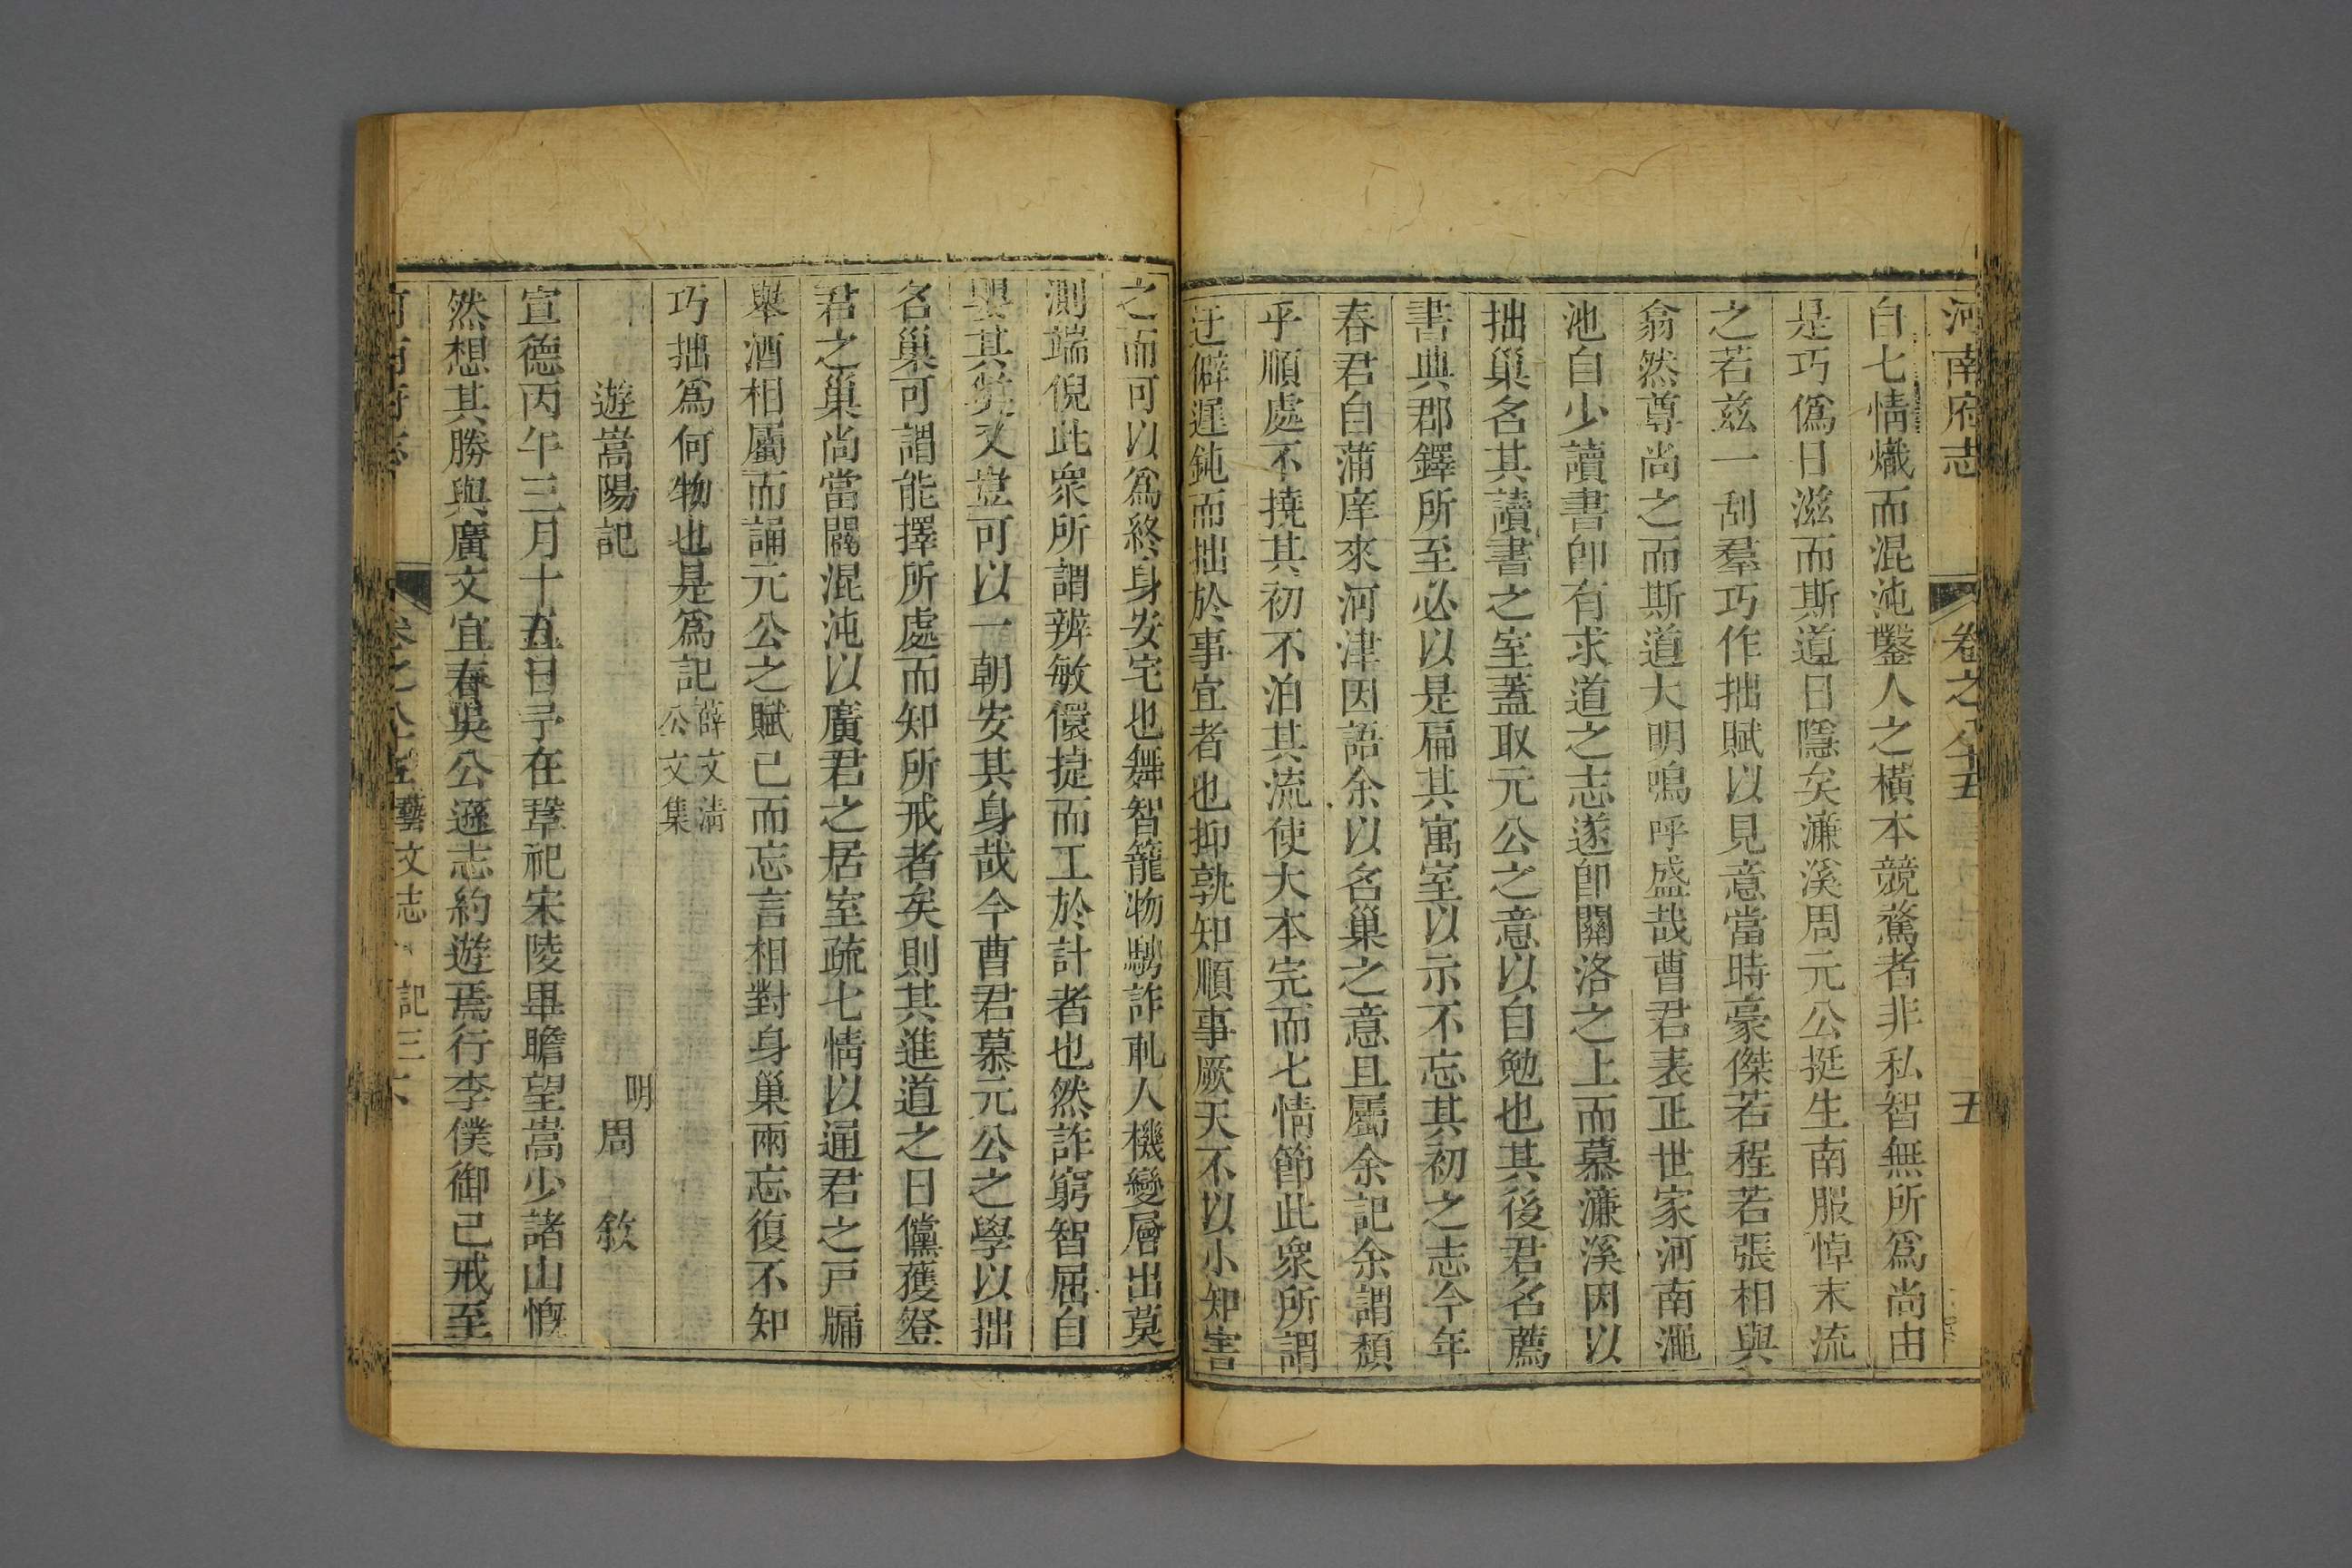 河南府志 卷之八十五 五
自七情熾而混沌鑿人之橫本競驁者非私智無所爲尚由
是巧僞日滋而斯道日隱矣濂溪周元公挺生南服悼末流
之若茲一刮羣巧作拙賦以見意當時豪傑若程若張相與
翕然尊尚之而斯道大明嗚呼盛哉曹君表正世家河南澠
池自少讀書卽有求道之志遂卽關洛之上而慕濂溪因以
拙巢名其讀書之室蓋取元公之意以自勉也其後君名薦
書典郡鐸所至必以是扁其寓室以示不忘其初之志今年
春君自蒲庠來河津因語余以名巢之意且屬余記余謂頹
乎順處不撓其初不泊其流使大本完而七情節此衆所謂
迂僻遲鈍而拙於事宜者也抑孰知順事厥天不以小知害
之而可以爲終身安宅也舞智籠物騁詐軋人機變層出莫
測端倪此衆所謂辨敏儇捷而工於計者也然詐窮智屈自
嬰其斃又豈可以一朝安其身哉今曹君慕元公之學以拙
名巢可謂能擇所處而知所戒者矣則其進道之日儻獲登
君之巢尚當闢混沌以廣君之居室疏七情以通君之戸牖
舉酒相屬而誦元公之賦已而忘言相對身巢兩忘復不知
巧拙爲何物也是爲記 薛文淸公文集
遊嵩陽記 明 周 敘
宣德丙午三月十五日予在鞏祀宋陵畢瞻望嵩少諸山慨
然想其勝與廣文宜春吳公遜志約遊焉行李僕御已戒至
藝文志 記三